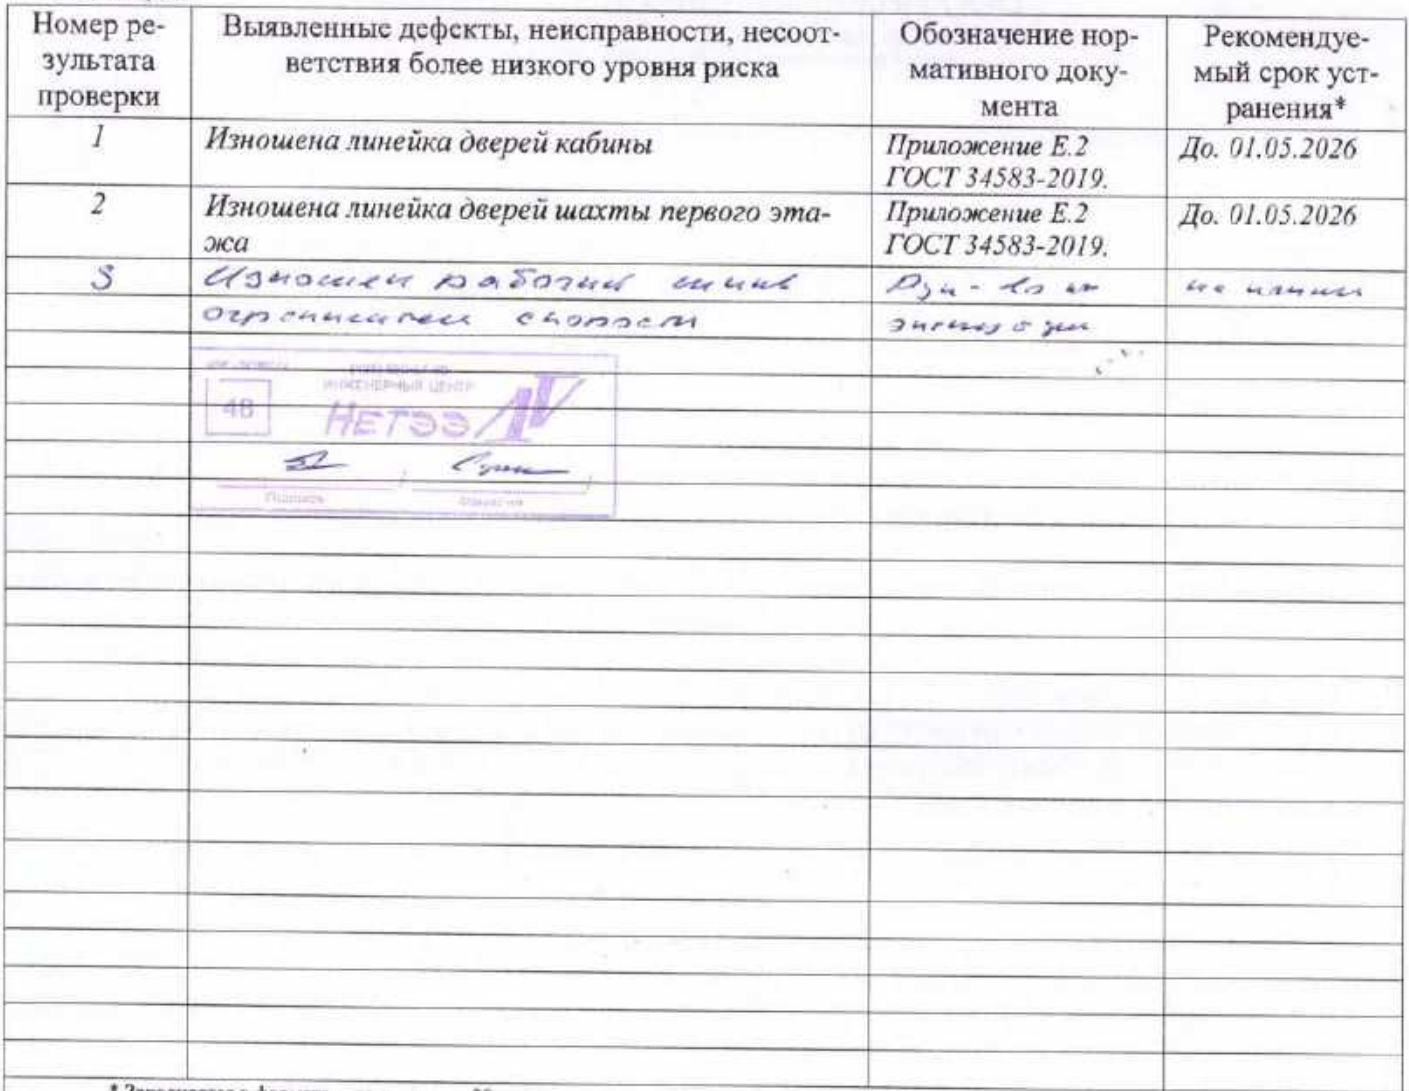 Номер ре-
зультата
проверки
Выявленные дефекты, неисправности, несоот-
ветствия более низкого уровня риска
Обозначение нор-
мативного доку-
мента
Рекомендуе-
мый срок уст-
ранения*
1
Изношена линейка дверей кабины
Приложение Е.2
ГОСТ 34583-2019.
До. 01.05.2026
2
Изношена линейка дверей шахты первого эта-
жа
Приложение Е.2
ГОСТ 34583-2019.
До. 01.05.2026
3
Изношен рабочий шкив
ограничителя скорости
Рук-во
ИНЖЕНЕРНЫЙ ЦЕНТР
48
НЕТЭЭ
Подпись
Фамилия